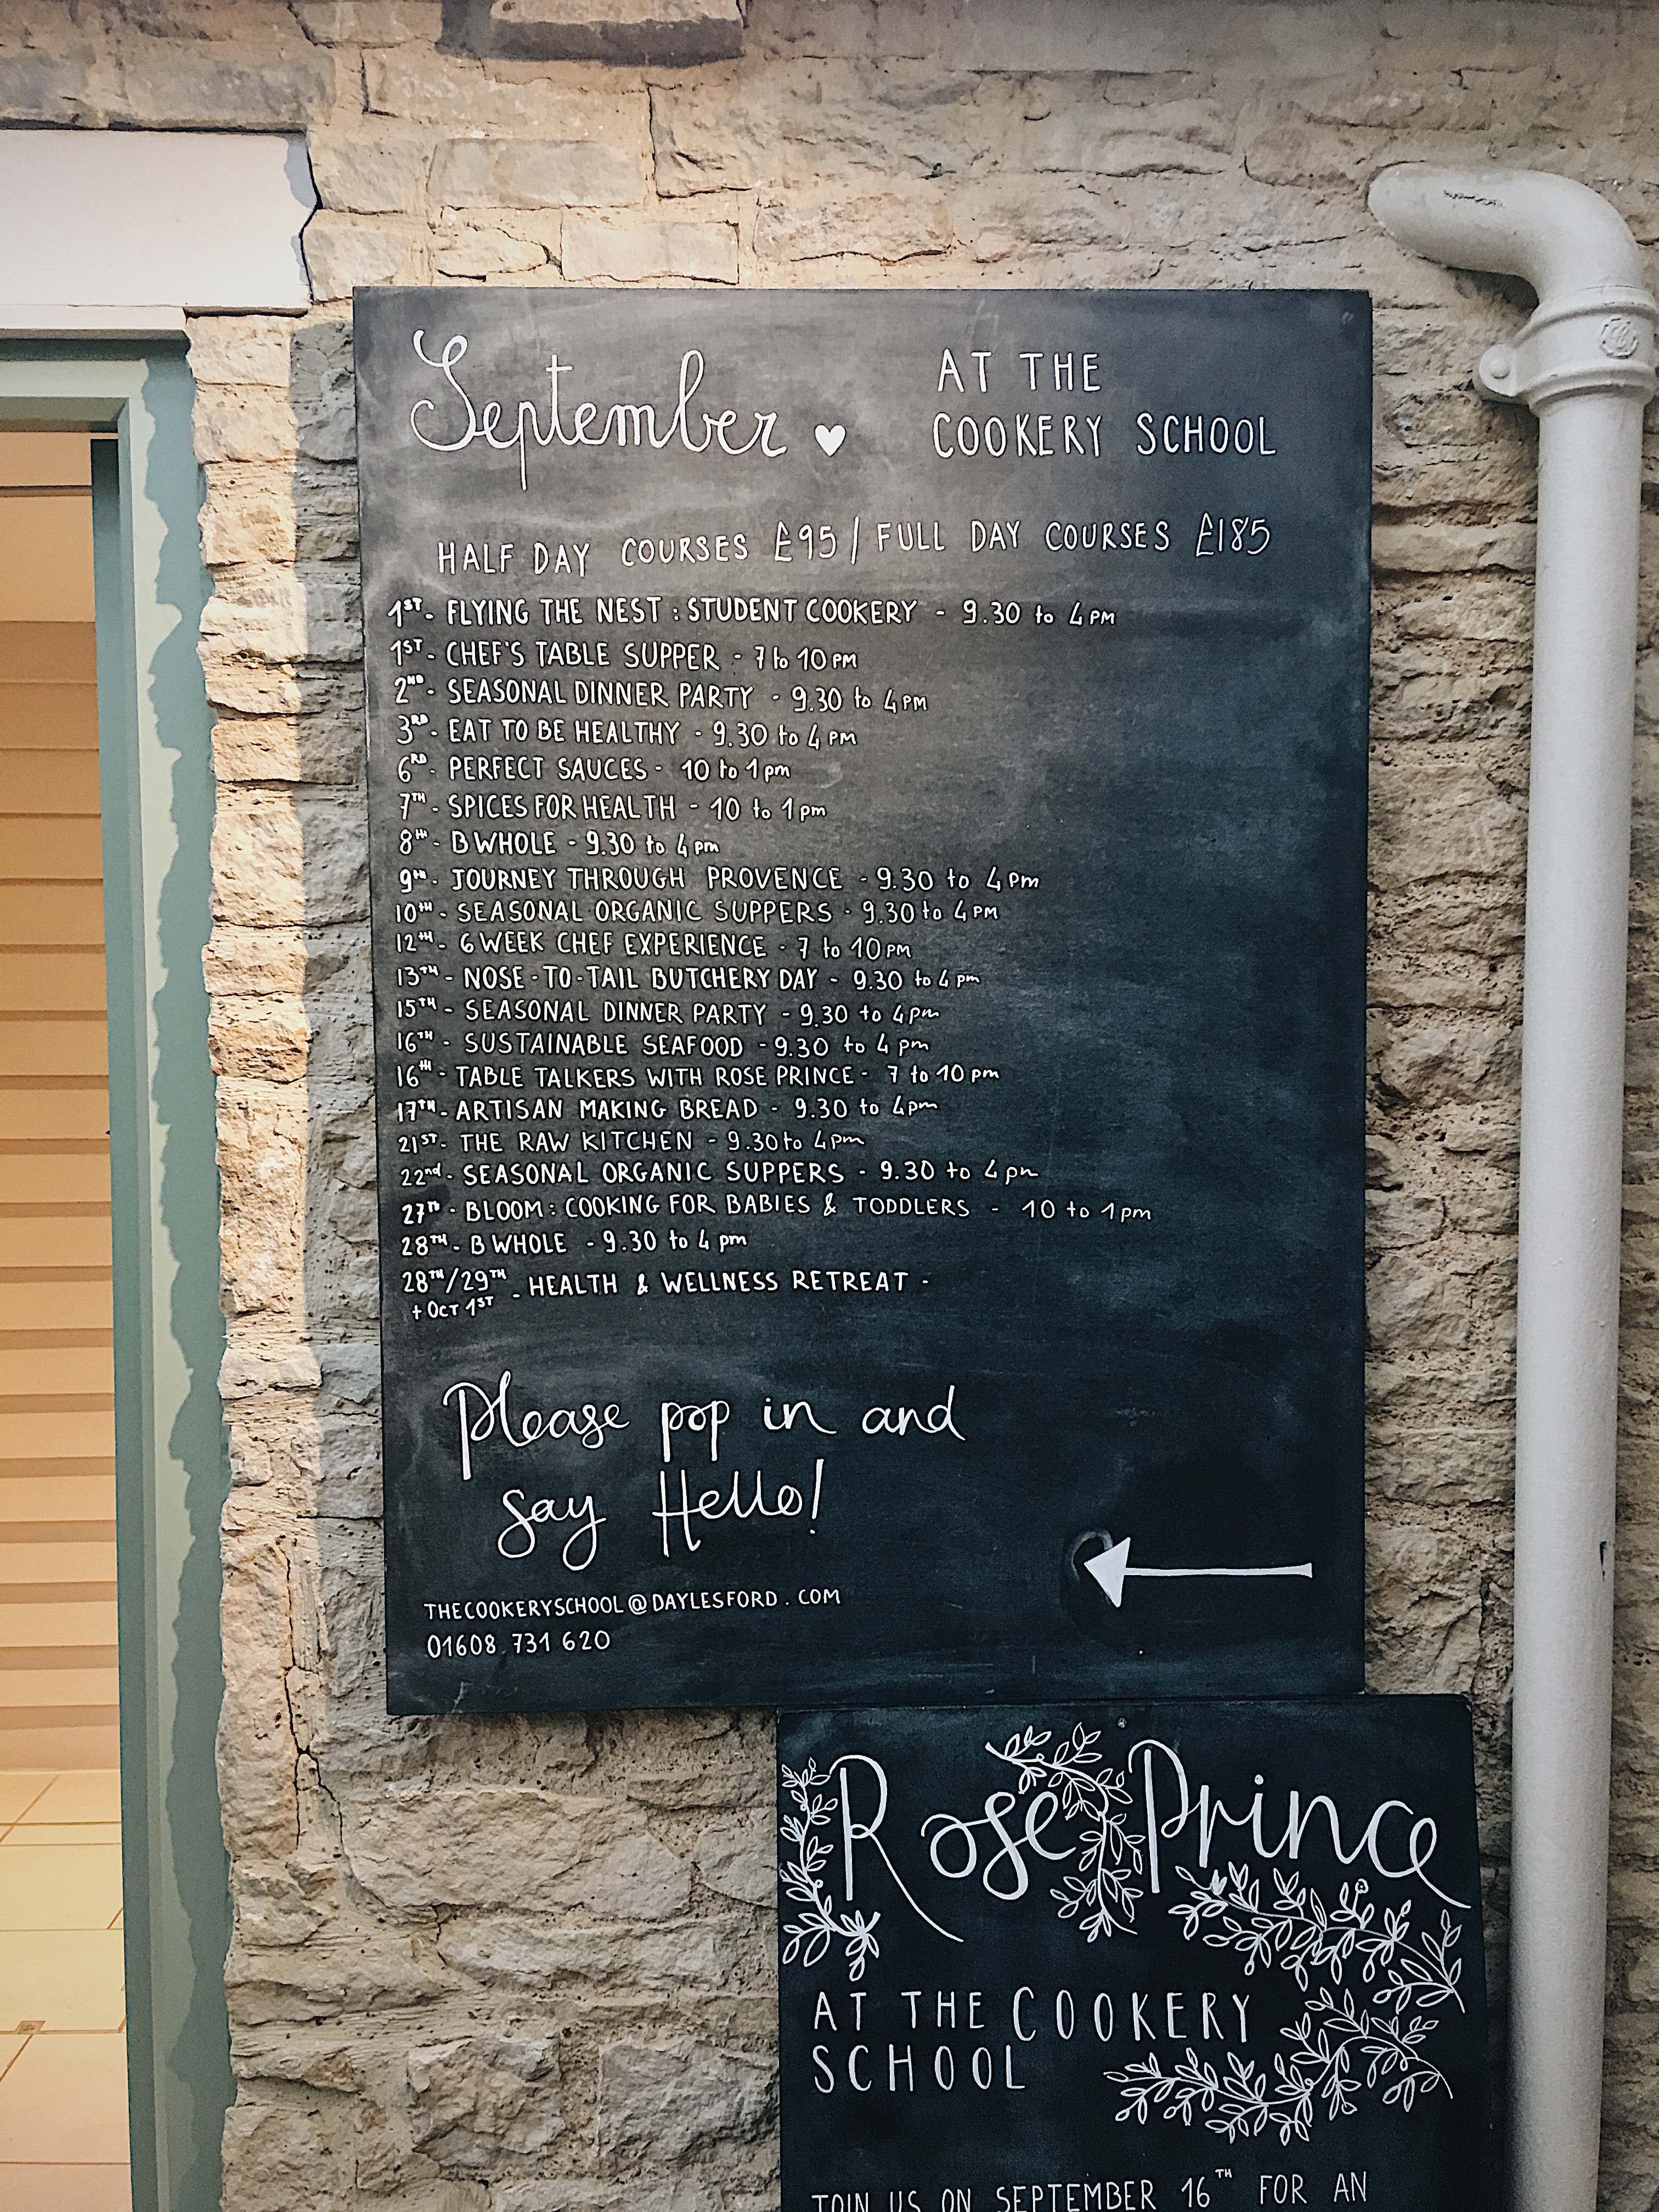 September ♥ AT THE
COOKERY SCHOOL
HALF DAY COURSES £95 / FULL DAY COURSES £185
1ST - FLYING THE NEST : STUDENT COOKERY - 9.30 to 4PM
1ST - CHEF'S TABLE SUPPER - 7 to 10PM
2ND - SEASONAL DINNER PARTY - 9.30 to 4PM
3RD - EAT TO BE HEALTHY - 9.30 to 4PM
6RD - PERFECT SAUCES - 10 to 1pm
7TH - SPICES FOR HEALTH - 10 to 1pm
8TH - B WHOLE - 9.30 to 4pm
9TH - JOURNEY THROUGH PROVENCE - 9.30 to 4Pm
10TH - SEASONAL ORGANIC SUPPERS - 9.30 to 4PM
12TH - 6 WEEK CHEF EXPERIENCE - 7 to 10PM
13TH - NOSE-TO-TAIL BUTCHERY DAY - 9.30 to 4pm
15TH - SEASONAL DINNER PARTY - 9.30 to 4pm
16TH - SUSTAINABLE SEAFOOD - 9.30 to 4pm
16TH - TABLE TALKERS WITH ROSE PRINCE - 7 to 10pm
17TH - ARTISAN MAKING BREAD - 9.30 to 4pm
21ST - THE RAW KITCHEN - 9.30 to 4pm
22nd - SEASONAL ORGANIC SUPPERS - 9.30 to 4pm
27TH - BLOOM : COOKING FOR BABIES & TODDLERS - 10 to 1pm
28TH - B WHOLE - 9.30 to 4pm
28TH/29TH - HEALTH & WELLNESS RETREAT -
+ OCT 1ST
Please pop in and
say Hello!
THECOOKERYSCHOOL@DAYLESFORD.COM
01608 731 620
Rose Prince
AT THE COOKERY
SCHOOL
JOIN US ON SEPTEMBER 16TH FOR AN